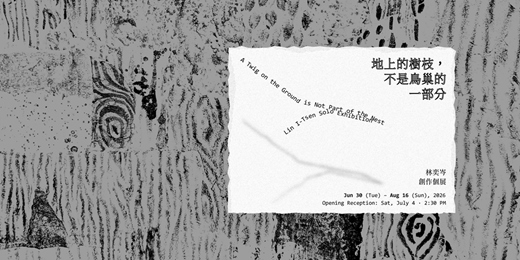 地上的樹枝，
不是鳥巢的
一部分
A Twig on the Ground is Not Part of the Nest
Lin I-Tsen Solo Exhibition
林奕岑
創作個展
Jun 30 (Tue) – Aug 16 (Sun), 2026
Opening Reception: Sat, July 4 · 2:30 PM